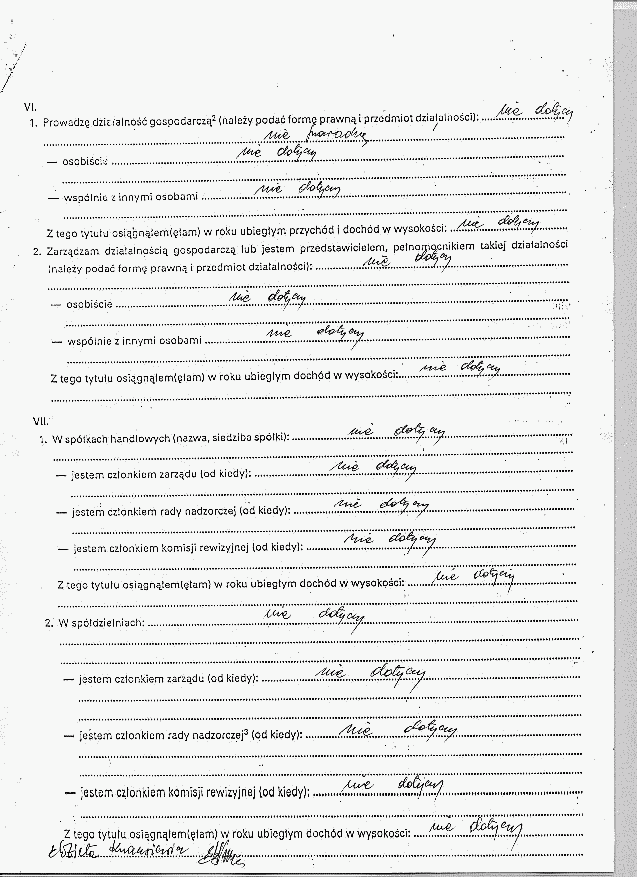 VI.
1. Prowadzę działalność gospodarczą² (należy podać formę prawną i przedmiot działalności): nie dotyczy
nie
— osobiście nie dotyczy
— wspólnie z innymi osobami nie dotyczy
Z tego tytułu osiągnąłem(ęłam) w roku ubiegłym przychód i dochód w wysokości: nie dotyczy
2. Zarządzam działalnością gospodarczą lub jestem przedstawicielem, pełnomocnikiem takiej działalności
(należy podać formę prawną i przedmiot działalności): nie dotyczy
— osobiście nie dotyczy
— wspólnie z innymi osobami nie dotyczy
Z tego tytułu osiągnąłem(ęłam) w roku ubiegłym dochód w wysokości: nie dotyczy
VII.
1. W spółkach handlowych (nazwa, siedziba spółki): nie dotyczy
— jestem członkiem zarządu (od kiedy): nie dotyczy
— jestem członkiem rady nadzorczej (od kiedy): nie dotyczy
— jestem członkiem komisji rewizyjnej (od kiedy): nie dotyczy
Z tego tytułu osiągnąłem(ęłam) w roku ubiegłym dochód w wysokości: nie dotyczy
2. W spółdzielniach: nie dotyczy
— jestem członkiem zarządu (od kiedy): nie dotyczy
— jestem członkiem rady nadzorczej³ (od kiedy): nie dotyczy
— jestem członkiem komisji rewizyjnej (od kiedy): nie dotyczy
Z tego tytułu osiągnąłem(ęłam) w roku ubiegłym dochód w wysokości: nie dotyczy